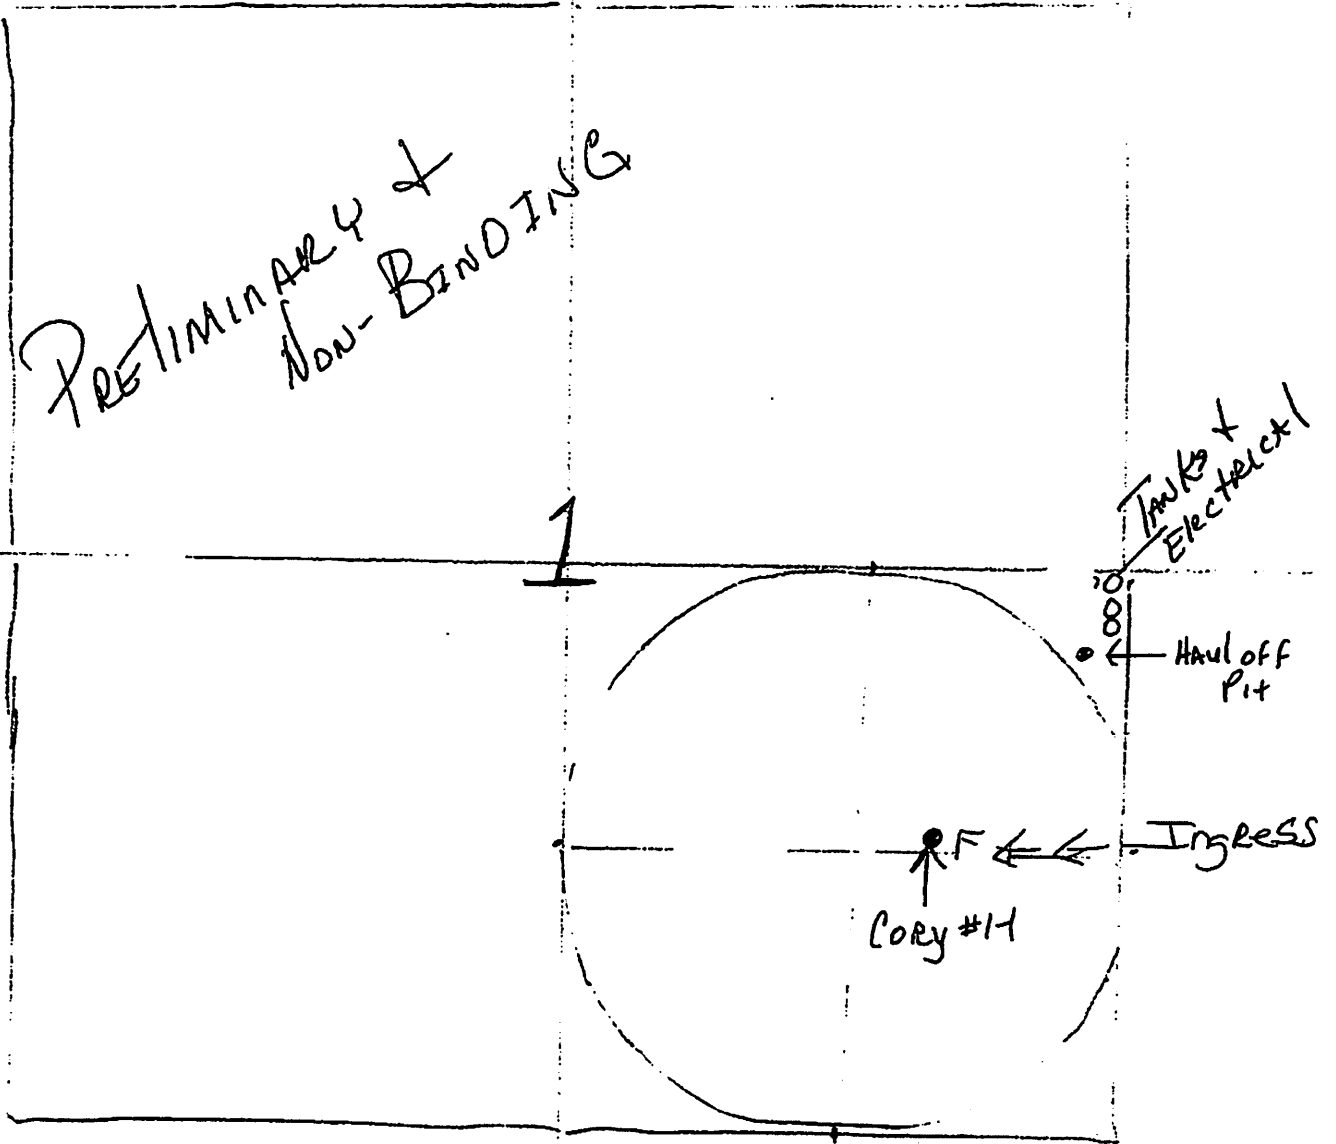 PRELIMINARY &
NON-BINDING
1
TANKS &
ElectRicAl
HAul off
Pit
F
IngReSS
CoRy #1-1